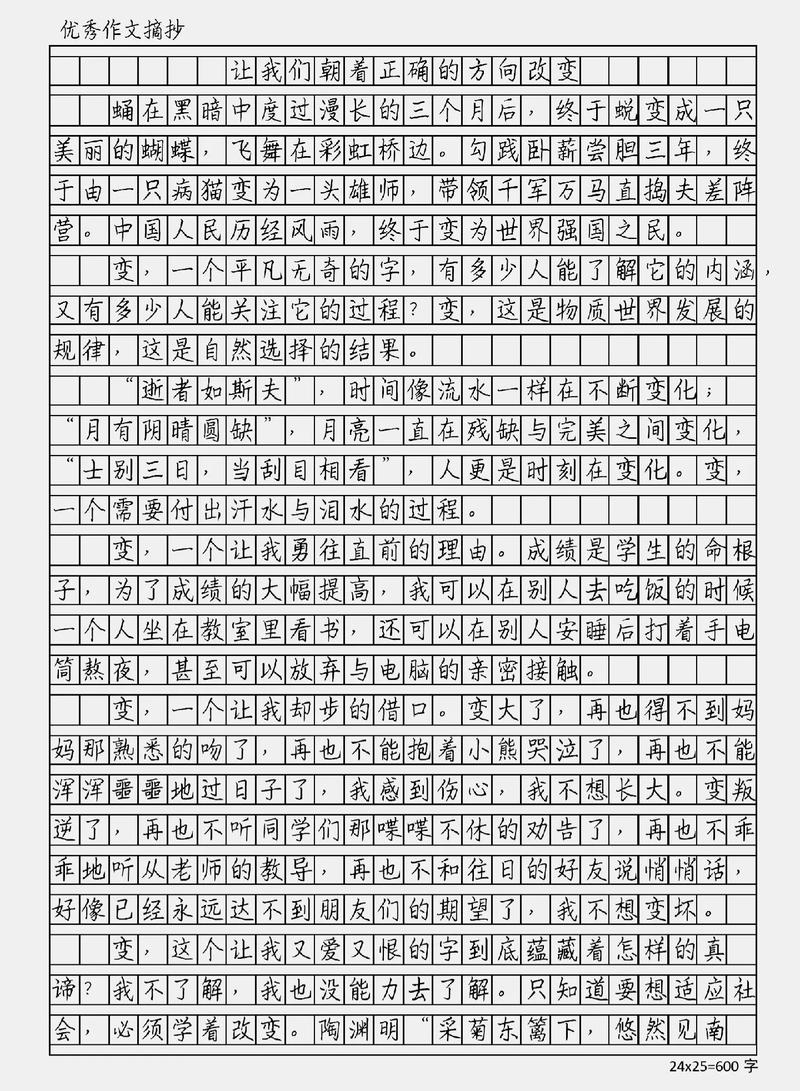 优秀作文摘抄
让我们朝着正确的方向改变
蛹在黑暗中度过漫长的三个月后，终于蜕变成一只
美丽的蝴蝶，飞舞在彩虹桥边。勾践卧薪尝胆三年，终
于由一只病猫变为一头雄师，带领千军万马直捣夫差阵
营。中国人民历经风雨，终于变为世界强国之民。
变，一个平凡无奇的字，有多少人能了解它的内涵，
又有多少人能关注它的过程？变，这是物质世界发展的
规律，这是自然选择的结果。
“逝者如斯夫”，时间像流水一样在不断变化；
“月有阴晴圆缺”，月亮一直在残缺与完美之间变化，
“士别三日，当刮目相看”，人更是时刻在变化。变，
一个需要付出汗水与泪水的过程。
变，一个让我勇往直前的理由。成绩是学生的命根
子，为了成绩的大幅提高，我可以在别人去吃饭的时候
一个人坐在教室里看书，还可以在别人安睡后打着手电
筒熬夜，甚至可以放弃与电脑的亲密接触。
变，一个让我却步的借口。变大了，再也得不到妈
妈那熟悉的吻了，再也不能抱着小熊哭泣了，再也不能
浑浑噩噩地过日子了，我感到伤心，我不想长大。变叛
逆了，再也不听同学们那喋喋不休的劝告了，再也不乖
乖地听从老师的教导，再也不和往日的好友说悄悄话，
好像已经永远达不到朋友们的期望了，我不想变坏。
变，这个让我又爱又恨的字到底蕴藏着怎样的真
谛？我不了解，我也没能力去了解。只知道要想适应社
会，必须学着改变。陶渊明“采菊东篱下，悠然见南
24x25=600 字